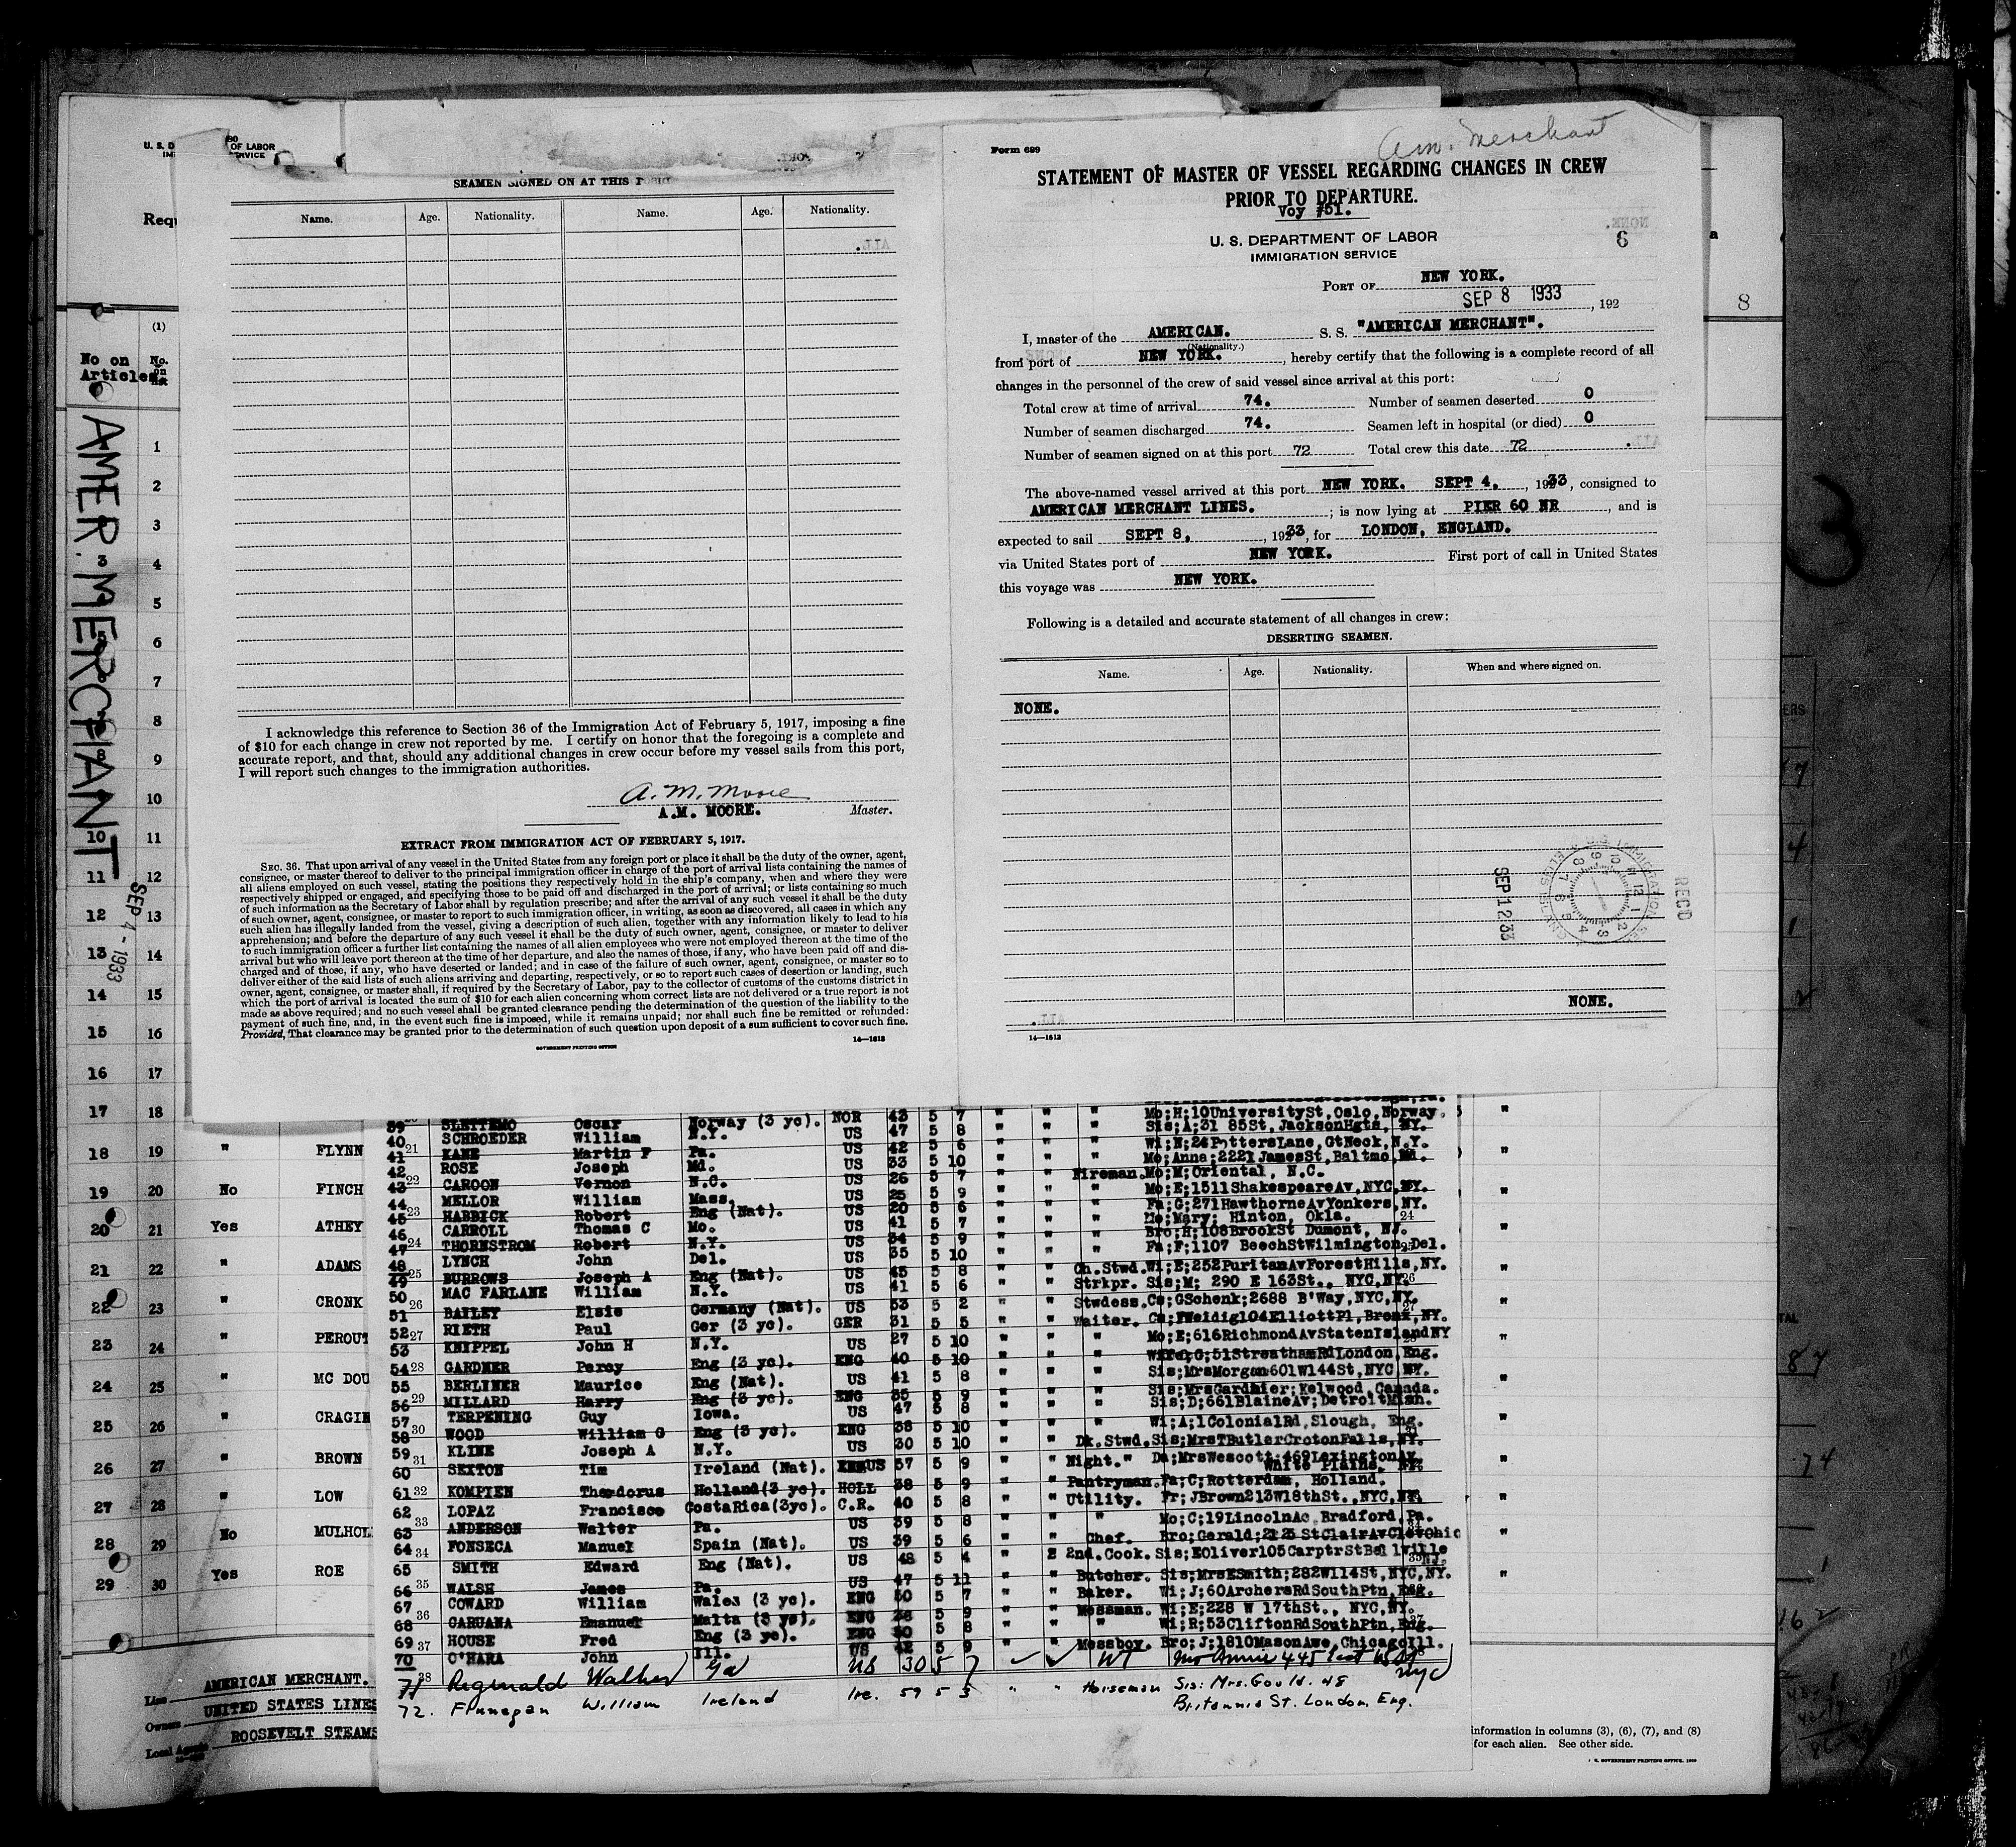 Form 699
Am. Merchant
STATEMENT OF MASTER OF VESSEL REGARDING CHANGES IN CREW
PRIOR TO DEPARTURE.
Voy #51.
U. S. DEPARTMENT OF LABOR
IMMIGRATION SERVICE
6
PORT OF NEW YORK.
SEP 8 1933, 192
I, master of the AMERICAN. S. S. "AMERICAN MERCHANT".
(Nationality.)
from port of NEW YORK., hereby certify that the following is a complete record of all
changes in the personnel of the crew of said vessel since arrival at this port:
Total crew at time of arrival 74. Number of seamen deserted 0
Number of seamen discharged 74. Seamen left in hospital (or died) 0
Number of seamen signed on at this port 72 Total crew this date 72
The above-named vessel arrived at this port NEW YORK. SEPT 4, 1933, consigned to
AMERICAN MERCHANT LINES. ; is now lying at PIER 60 NR, and is
expected to sail SEPT 8, 1933, for LONDON, ENGLAND.
via United States port of NEW YORK. First port of call in United States
this voyage was NEW YORK.
Following is a detailed and accurate statement of all changes in crew:
DESERTING SEAMEN.
Name. Age. Nationality. When and where signed on.
NONE.
NONE.
RECD
SEP 12 33
14—1613
SEAMEN SIGNED ON AT THIS
Name. Age. Nationality. Name. Age. Nationality.
I acknowledge this reference to Section 36 of the Immigration Act of February 5, 1917, imposing a fine
of $10 for each change in crew not reported by me. I certify on honor that the foregoing is a complete and
accurate report, and that, should any additional changes in crew occur before my vessel sails from this port,
I will report such changes to the immigration authorities.
A. M. Moore
A.M. MOORE. Master.
EXTRACT FROM IMMIGRATION ACT OF FEBRUARY 5, 1917.
SEC. 36. That upon arrival of any vessel in the United States from any foreign port or place it shall be the duty of the owner, agent,
consignee, or master thereof to deliver to the principal immigration officer in charge of the port of arrival lists containing the names of
all aliens employed on such vessel, stating the positions they respectively hold in the ship's company, when and where they were
respectively shipped or engaged, and specifying those to be paid off and discharged in the port of arrival; or lists containing so much
of such information as the Secretary of Labor shall by regulation prescribe; and after the arrival of any such vessel it shall be the duty
of such owner, agent, consignee, or master to report to such immigration officer, in writing, as soon as discovered, all cases in which any
such alien has illegally landed from the vessel, giving a description of such alien, together with any information likely to lead to his
apprehension; and before the departure of any such vessel it shall be the duty of such owner, agent, consignee, or master to deliver
to such immigration officer a further list containing the names of all alien employees who were not employed thereon at the time of the
arrival but who will leave port thereon at the time of her departure, and also the names of those, if any, who have been paid off and dis-
charged and of those, if any, who have deserted or landed; and in case of the failure of such owner, agent, consignee, or master so to
deliver either of the said lists of such aliens arriving and departing, respectively, or so to report such cases of desertion or landing, such
owner, agent, consignee, or master shall, if required by the Secretary of Labor, pay to the collector of customs of the customs district in
which the port of arrival is located the sum of $10 for each alien concerning whom correct lists are not delivered or a true report is not
made as above required; and no such vessel shall be granted clearance pending the determination of the question of the liability to the
payment of such fine, and, in the event such fine is imposed, while it remains unpaid; nor shall such fine be remitted or refunded:
Provided, That clearance may be granted prior to the determination of such question upon deposit of a sum sufficient to cover such fine.
GOVERNMENT PRINTING OFFICE 14—1613
AMER. MERCHANT
SEP 4 - 1933
No on Articles
(1)
No. on list
18 19 " FLYNN
19 20 No FINCH
20 21 Yes ATHEY
21 22 " ADAMS
22 23 " CRONK
23 24 " PEROUT
24 25 " MC DOU
25 26 " CRAGIN
26 27 " BROWN
27 28 " LOW
28 29 No MULHOL
29 30 Yes ROE
Line AMERICAN MERCHANT.
Owners UNITED STATES LINES
Local Agents ROOSEVELT STEAMS
39 SLETTEMO Oscar Norway (3 yc). NOR 43 5 7 " " " Mo;H;10UniversitySt,Oslo,Norway.
40 SCHROEDER William N.Y. US 47 5 8 Sis;A;31 85St, JacksonHgts, NY.
41 KANE Martin F Pa. US 42 5 6 Wi;N;24PottersLane, GtNeck,N.Y.
42 ROSE Joseph Md. US 33 5 10 Mo;Anna;2221JamesSt,Baltmo,Md.
43 CAROON Vernon N.C. US 26 5 7 Fireman. Mo;M;Oriental, N.C.
44 MELLOR William Mass. US 25 5 9 Mo;E;1511ShakespeareAv,NYC,NY.
45 HABBICK Robert Eng (Nat). US 20 5 6 Fa;G;271HawthorneAvYonkers,NY.
46 CARROLL Thomas C Mo. US 41 5 7 Mo;Mary; Hinton, Okla.
47 THORNSTROM Robert N.Y. US 34 5 9 Bro;H;108BrookSt Dumont, NJ.
48 LYNCH John Del. US 35 5 10 Fa;F;1107 BeechStWilmington,Del.
49 BURROWS Joseph A Eng (Nat). US 45 5 8 Ch.Stwd. Wi;E;252PuritanAvForestHills,NY.
50 MAC FARLANE William N.Y. US 41 5 6 Strkpr. Sis;M; 290 E 163St., NYC,NY.
51 BAILEY Elsie Germany (Nat). US 53 5 2 Stwdess. Cs;GSchenk;2688 B'Way,NYC,NY.
52 RIETH Paul Ger (3 yc). GER 31 5 5 Waiter. Cs;FWeidig104ElliottPl,Bronx,NY.
53 KNIPPEL John H N.Y. US 27 5 10 " Mo;E;616RichmondAvStatenIslandNY
54 GARDNER Percy Eng (3 yc). ENG 40 5 10 " 51StreathamRdLondon,Eng.
55 BERLINER Maurice Eng (Nat). US 41 5 8 " Sis;MrsMorgan601W144St,NYC,NY.
56 MILLARD Harry Eng (3 yc). ENG 35 5 9 " Sis;MrsGardhier;Kelwood,Canada.
57 TERPENING Guy Iowa. US 47 5 8 " Sis;D;661BlaineAv;DetroitMich.
58 WOOD William G Eng (3 yc). ENG 38 5 10 " Wi;A;1ColonialRd,Slough, Eng.
59 KLINE Joseph A N.Y. US 30 5 10 Dk.Stwd. Sis;MrsTButlerCrotonFalls,NY.
60 SEXTON Tim Ireland (Nat). US 57 5 9 Night." Da;MrsWescott;469LexingtonAv
White Plains, NY.
61 KOMPIEN Theodorus Holland(3 yc). HOLL 38 5 9 Pantryman. Fa;C;Rotterdam, Holland.
62 LOPAZ Francisco CostaRica(3yc). C.R. 40 5 8 Utility. Fr;JBrown213W18thSt.,NYC,NY.
63 ANDERSON Walter Pa. US 39 5 8 " Mo;C;19LincolnAc,Bradford,Pa.
64 FONSECA Manuel Spain (Nat). US 39 5 6 Chef. Bro;Gerald;2123 StClairAvClevOhio
65 SMITH Edward Eng (Nat). US 48 5 4 2nd.Cook. Sis;EOliver105CarptrStBellville NJ.
66 WALSH James Pa. US 47 5 11 Butcher. Sis;MrsESmith;282W114St,NYC,NY.
67 COWARD William Wales (3 yc). ENG 50 5 7 Baker. Wi;J;60ArchersRdSouthPtn,Eng.
68 CARUANA Emanuel Malta (3 yc). ENG 36 5 9 Messman. Wi;E;228 W 17thSt., NYC,NY.
69 HOUSE Fred Eng (3 yc). ENG 30 5 8 " Wi;R;53CliftonRdSouthPtn,Eng.
70 O'HARA John Ill. US 42 5 9 Messboy. Bro;J;1810MasonAve,ChicagoIll.
71 Reginald Walker Ga US 30 5 7 WT Mo Annie 445 East NYC
72. Finnegan William Ireland Ire. 59 5 5 " " Horseman Sis: Mrs. Gould. 48
Britannia St. London Eng.
information in columns (3), (6), (7), and (8)
for each alien. See other side.